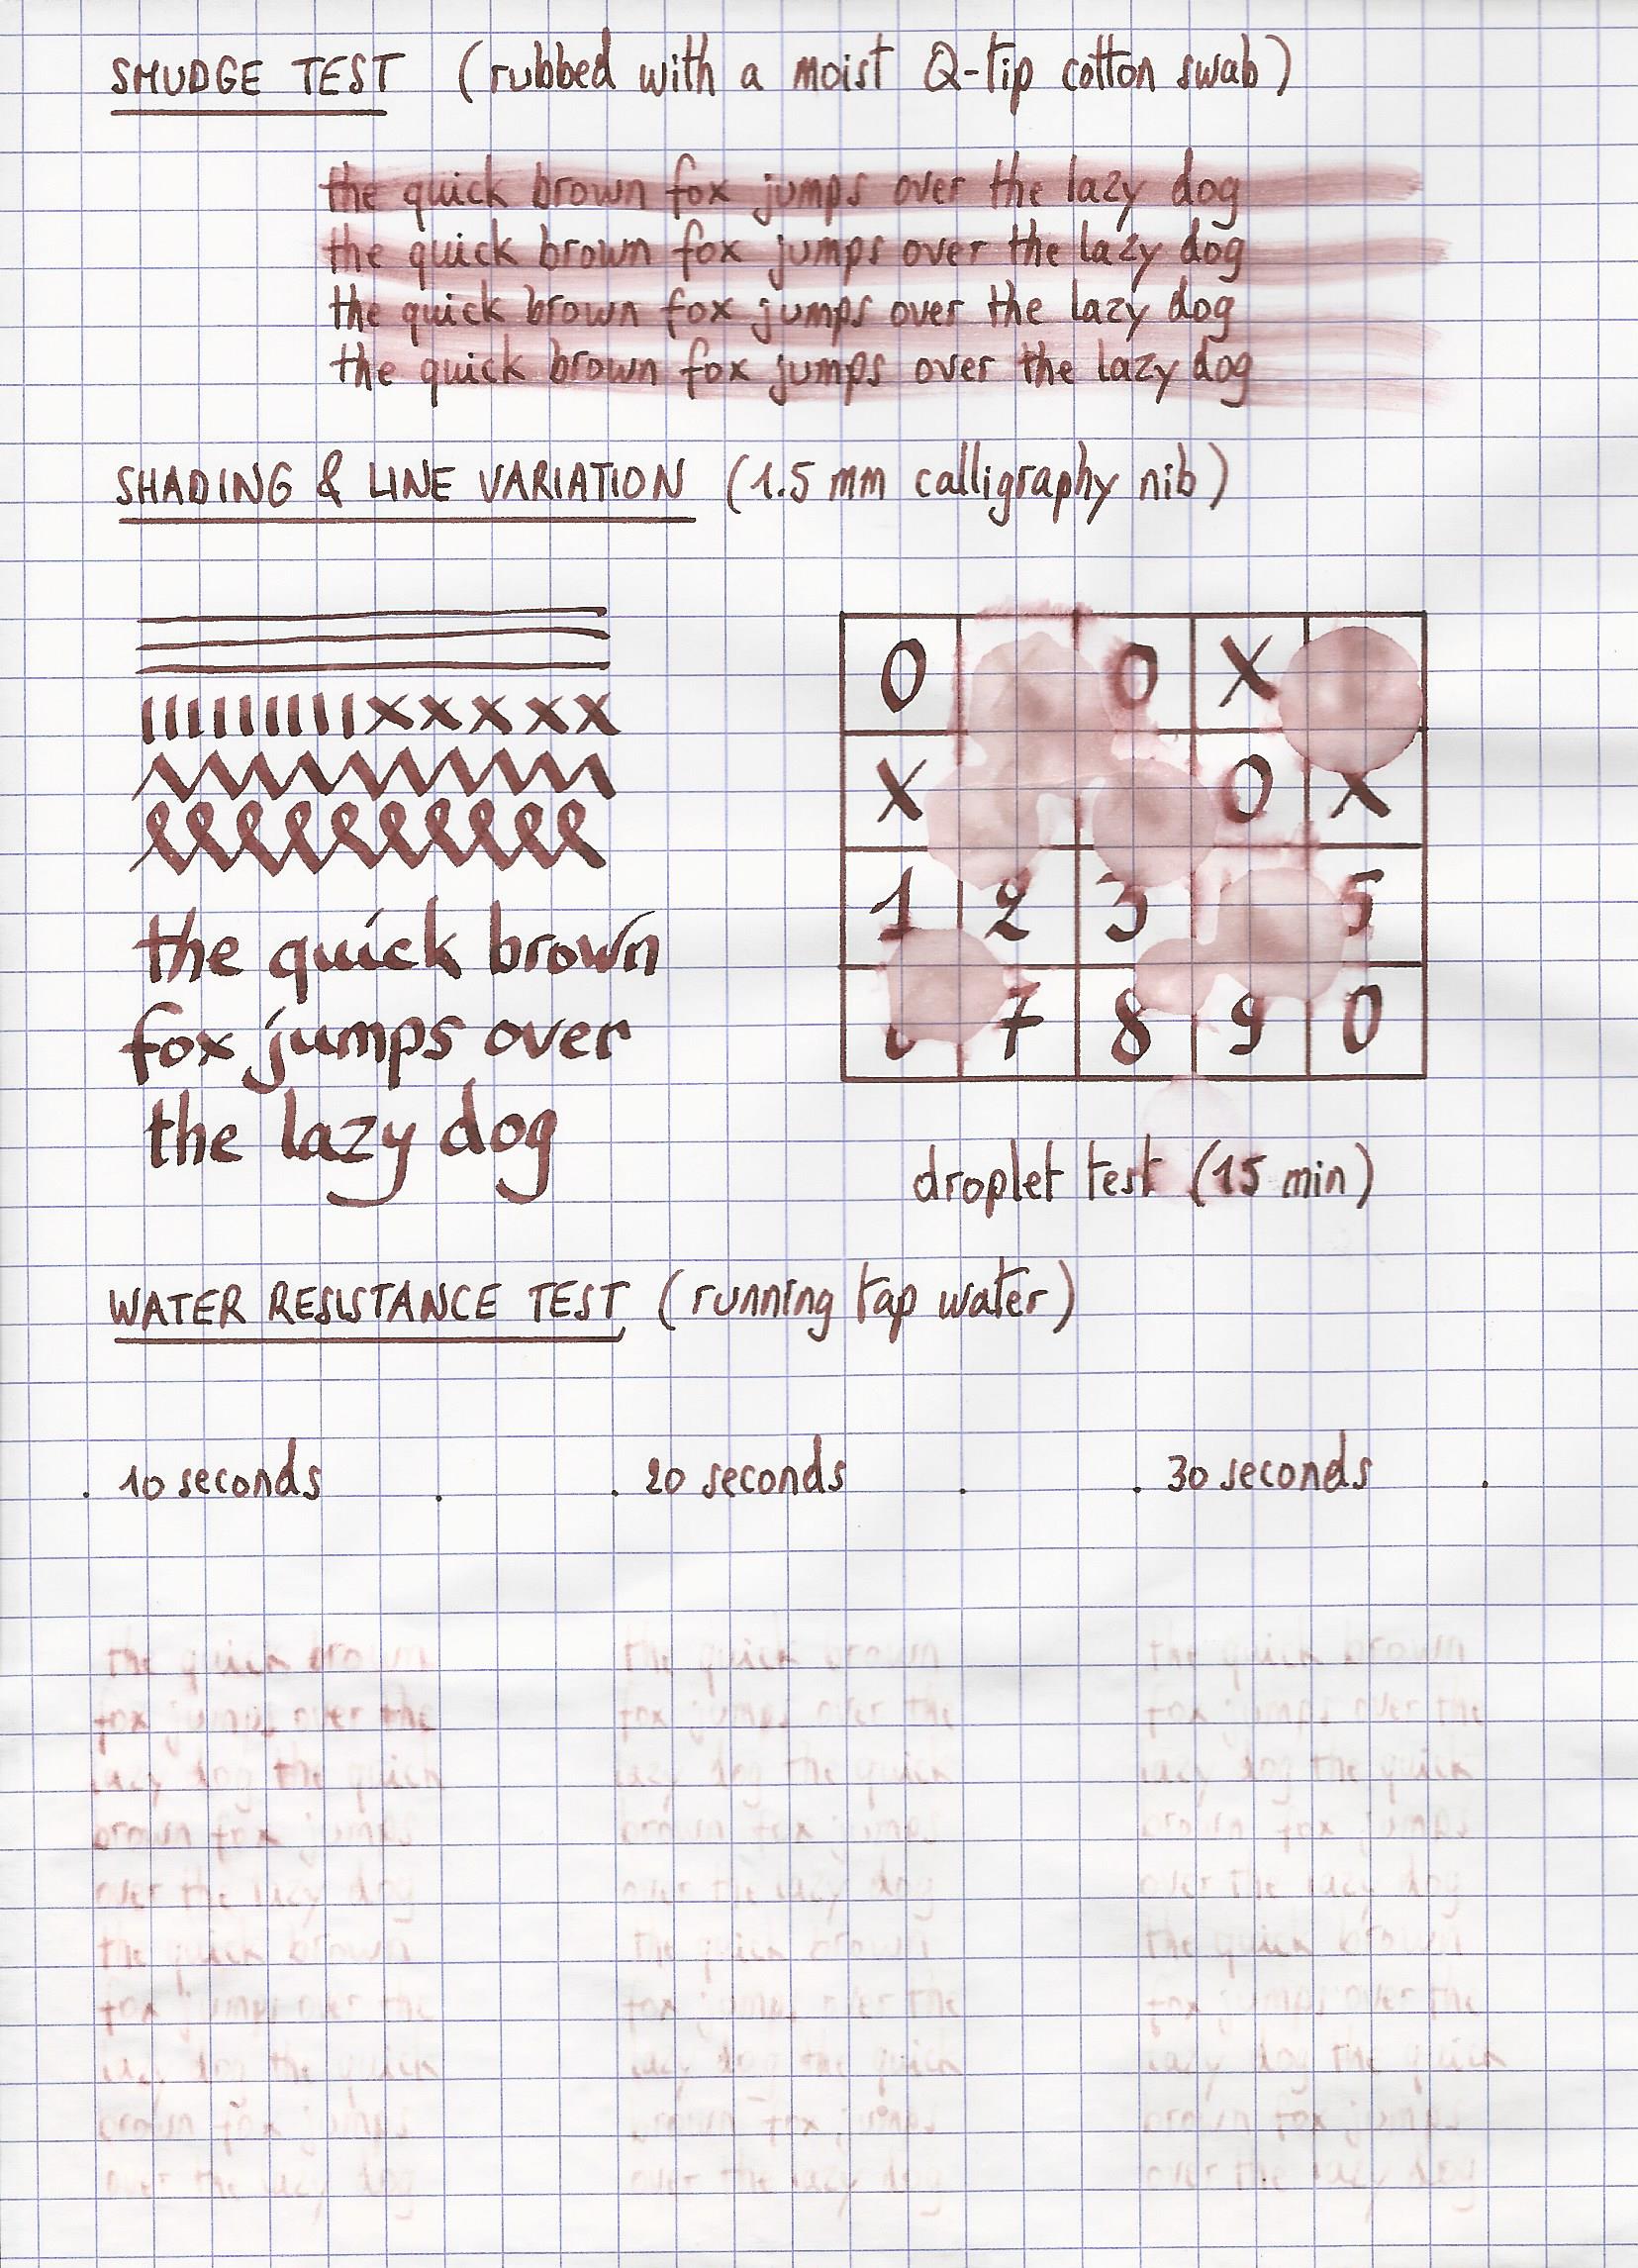 SMUDGE TEST (rubbed with a moist Q-tip cotton swab)
the quick brown fox jumps over the lazy dog
the quick brown fox jumps over the lazy dog
the quick brown fox jumps over the lazy dog
the quick brown fox jumps over the lazy dog
SHADING & LINE VARIATION (1.5 mm calligraphy nib)
O O X
X O X
1 2 3 5
7 8 9 0
the quick brown
fox jumps over
the lazy dog
droplet test (15 min)
WATER RESISTANCE TEST (running tap water)
10 seconds 20 seconds 30 seconds
the quick brown the quick brown the quick brown
fox jumps over the fox jumps over the fox jumps over the
lazy dog the quick lazy dog the quick lazy dog the quick
brown fox jumps brown fox jumps brown fox jumps
over the lazy dog over the lazy dog over the lazy dog
the quick brown the quick brown the quick brown
fox jumps over the fox jumps over the fox jumps over the
lazy dog the quick lazy dog the quick lazy dog the quick
brown fox jumps brown fox jumps brown fox jumps
over the lazy dog over the lazy dog over the lazy dog